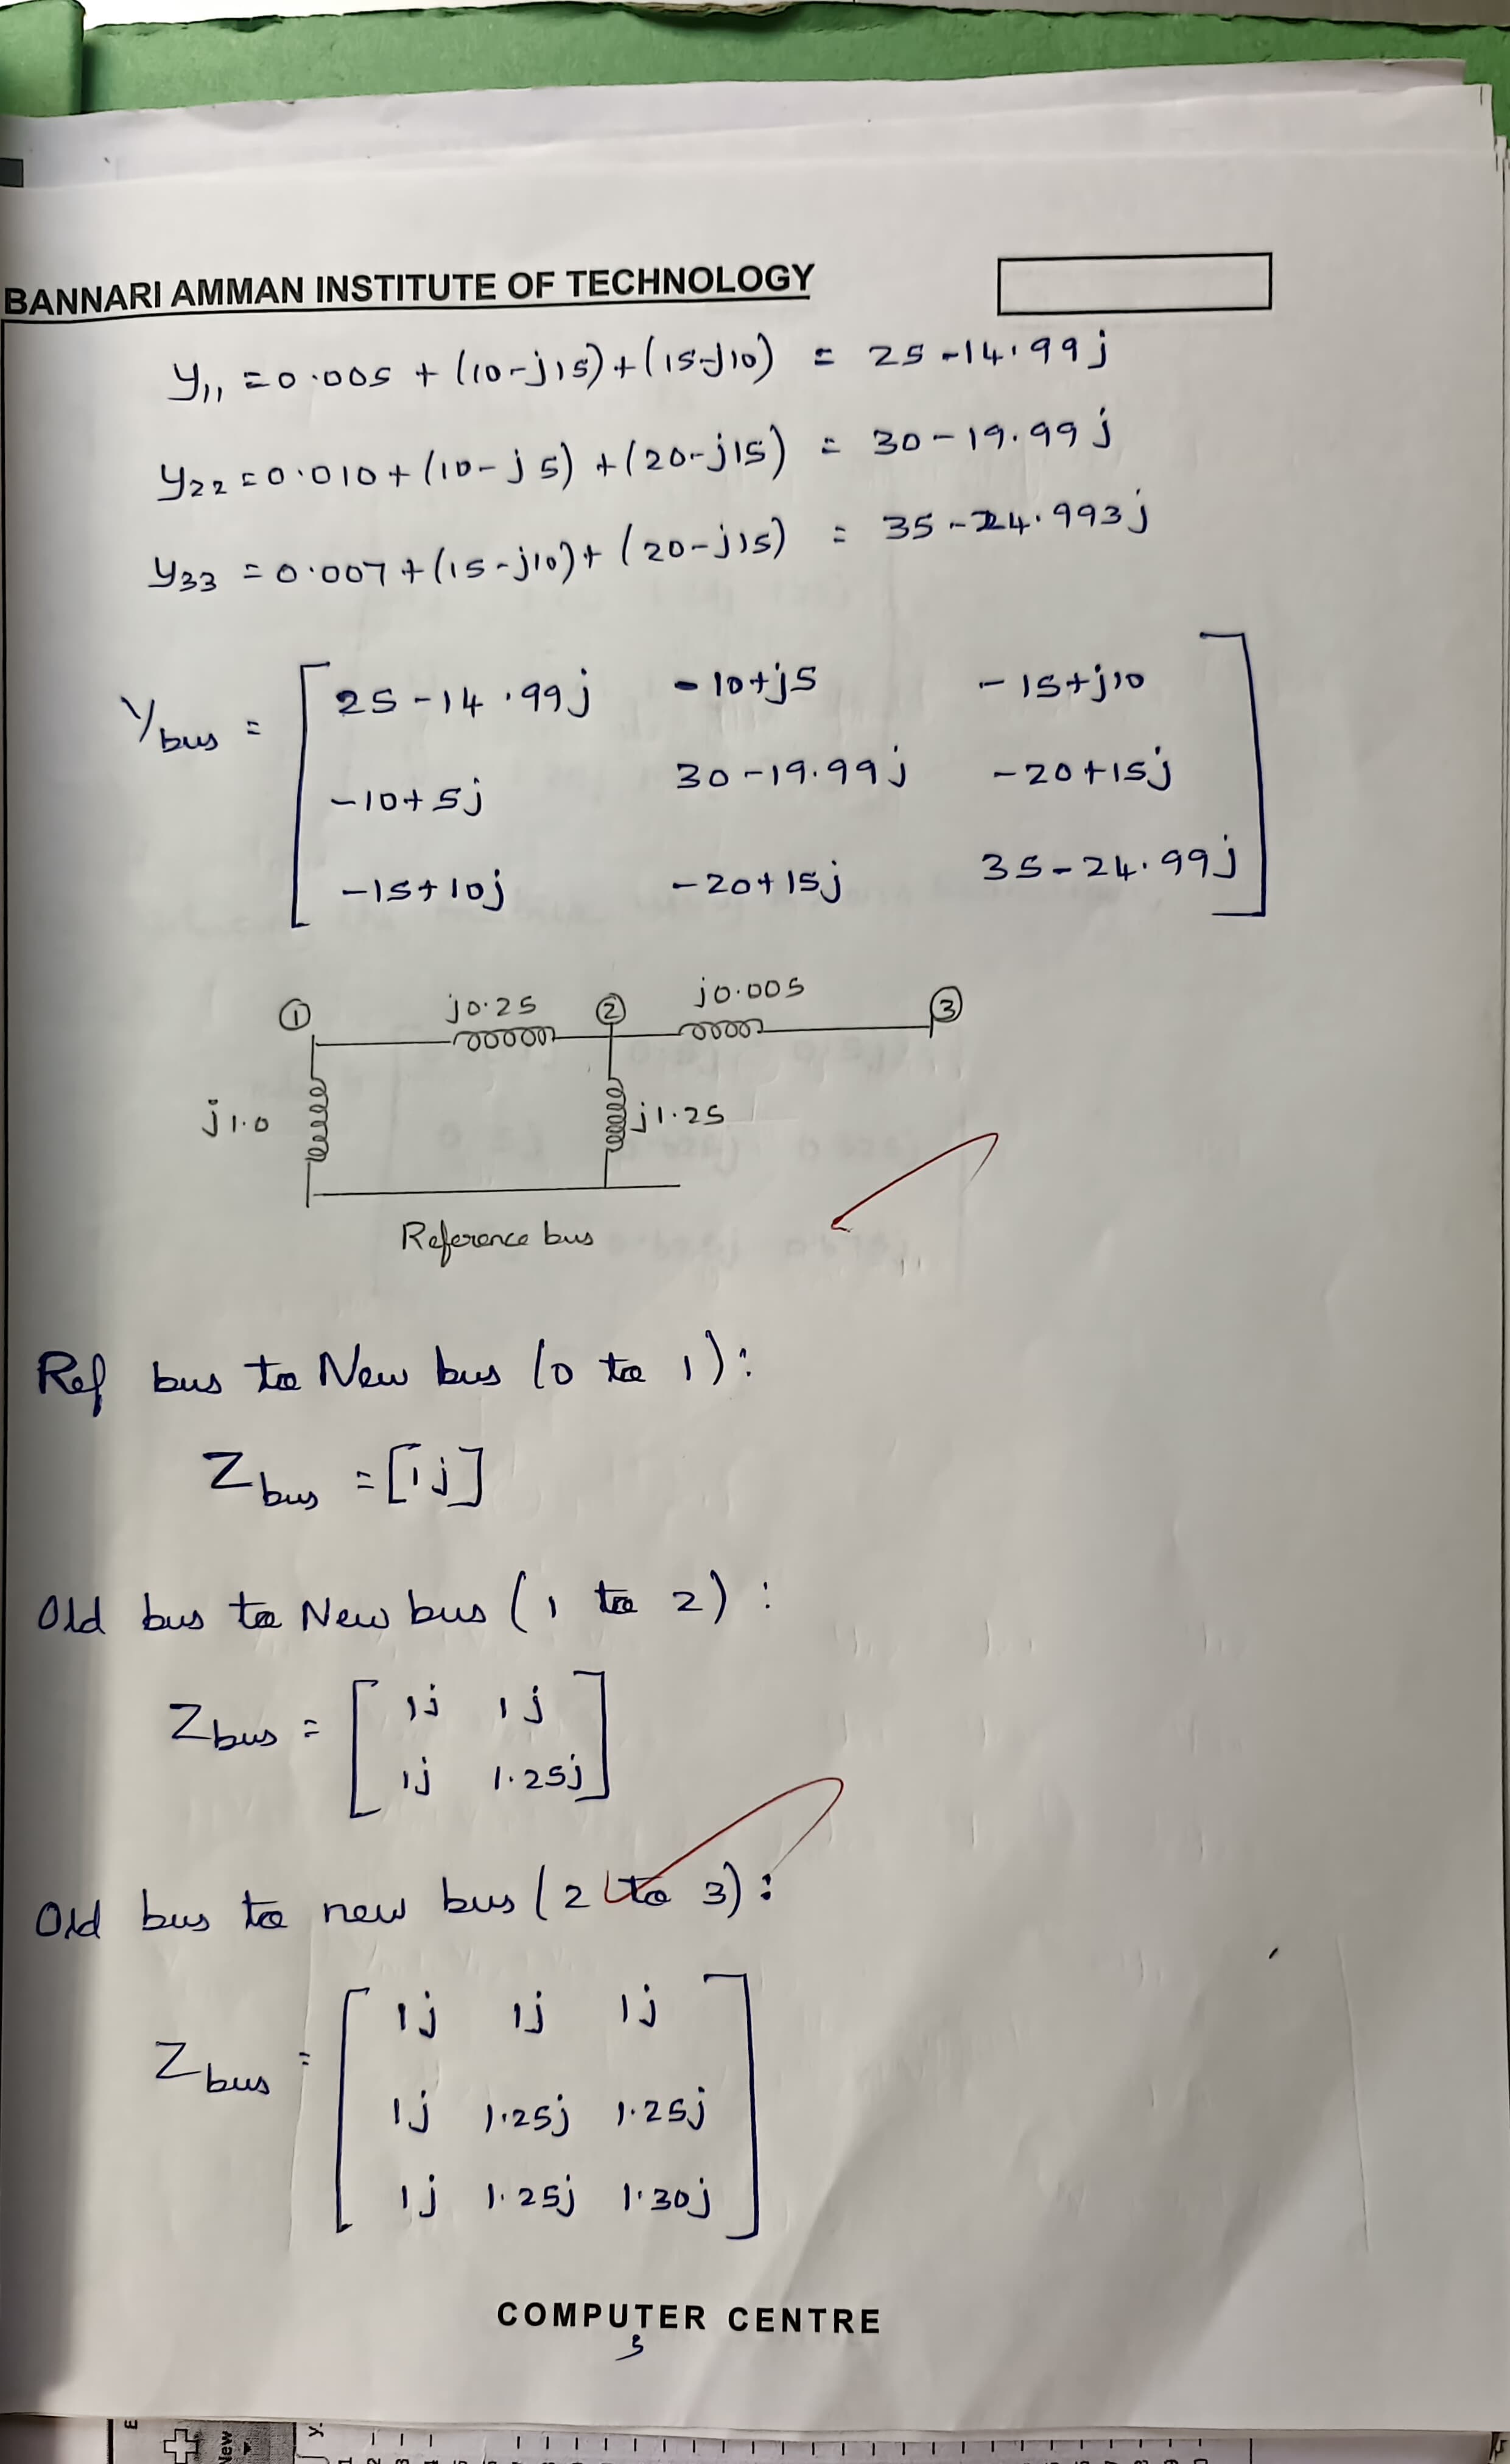 BANNARI AMMAN INSTITUTE OF TECHNOLOGY
y11 = 0.005 + (10-j15) + (15-j10) = 25-14.99j
y22 = 0.010 + (10-j5) + (20-j15) = 30-19.99j
y33 = 0.007 + (15-j10) + (20-j15) = 35-24.993j
Ybus = [ 25-14.99j -10+j5 -15+j10
-10+5j 30-19.99j -20+15j
-15+10j -20+15j 35-24.99j ]
① j0.25 ② j0.005 ③
j1.0 j1.25
Reference bus
Ref bus to New bus (0 to 1):
Zbus = [1j]
Old bus to New bus (1 to 2):
Zbus = [ 1j 1j
1j 1.25j ]
Old bus to new bus (2 to 3):
Zbus = [ 1j 1j 1j
1j 1.25j 1.25j
1j 1.25j 1.30j ]
COMPUTER CENTRE
3
New